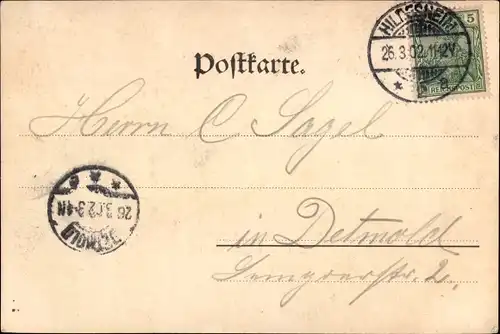 HILDESHEIM
26.3.02.11-12V.
* a
5
REICHSPOST
Postkarte.
Herrn C Sagel
DETMOLD
26.3.02.3-4N
* *
in Detmold
Lemgoerstr. 2.